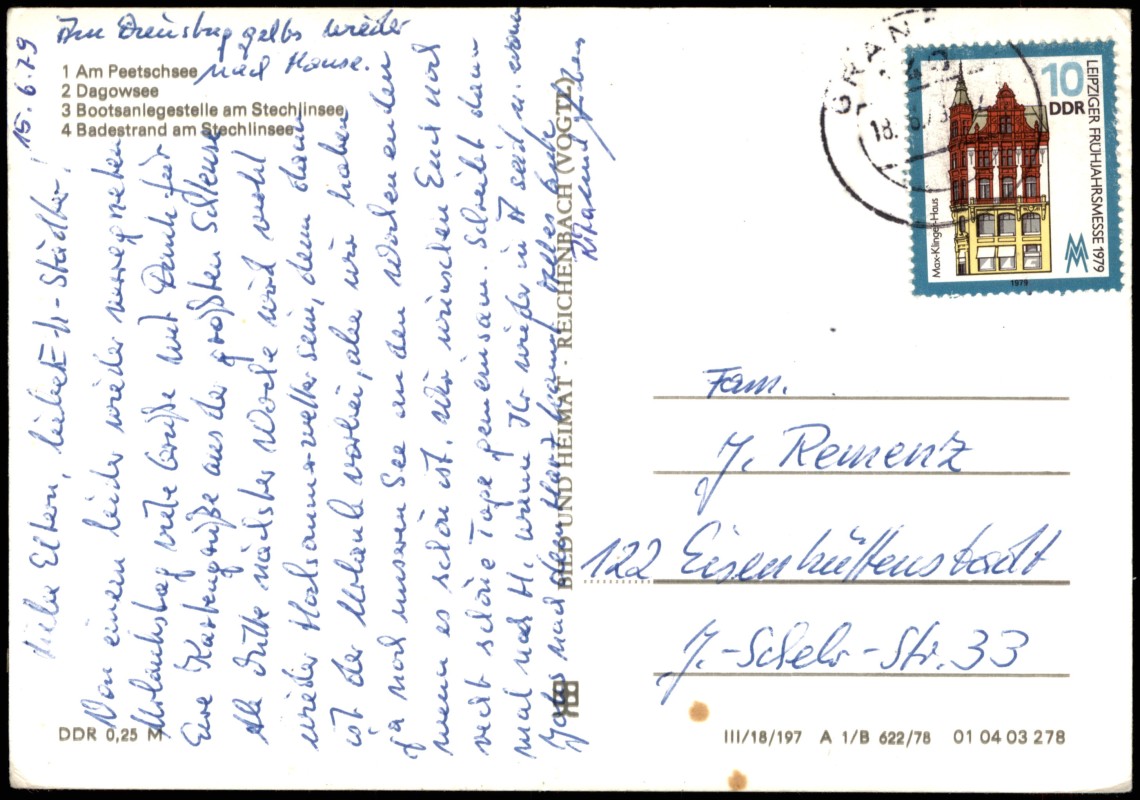 1 Am Peetschsee
2 Dagowsee
3 Bootsanlegestelle am Stechlinsee
4 Badestrand am Stechlinsee
15.6.79
Liebe Eltern, liebe E-H-Städter!
Von einem leider wieder verregneten
Urlaubstag viele Grüße und Dank für
Eure Kartengrüße aus der größten Schleuse
Als dritte nächster Woche wird wohl
wieder Hochsommerwetter sein, denn dann
ist der Urlaub vorbei, aber wir haben
ja noch unseren See an den Wochenenden
wenn es schön ist. Wir wünschen Euch noch
recht schöne Tage gemeinsam. Schreibt dann
mal nach H. wenn Ihr wieder in seid u. wann
nach dem Harz Alles Gute
Am Dienstag gehts wieder
nach Hause.
BILD UND HEIMAT · REICHENBACH (VOGTL)
DDR 0,25 M
GRAN
18.6.79
10
DDR
LEIPZIGER FRÜHJAHRSMESSE 1979
Max-Klinger-Haus
1979
Fam.
J. Remenz
122 Eisenhüttenstadt
J.-Schehr-Str. 33
III/18/197 A 1/B 622/78 01 04 03 278